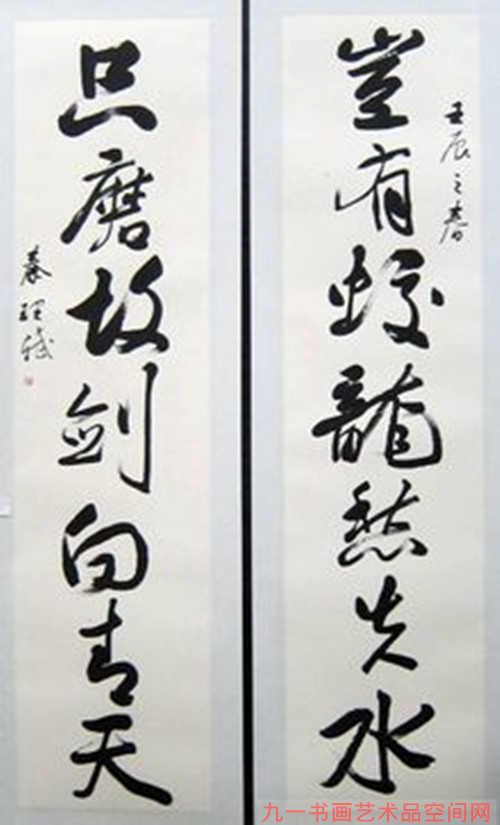 壬辰之春
岂有蛟龍愁失水
只磨古剑向青天
秦理斌
九一书画艺术品空间网